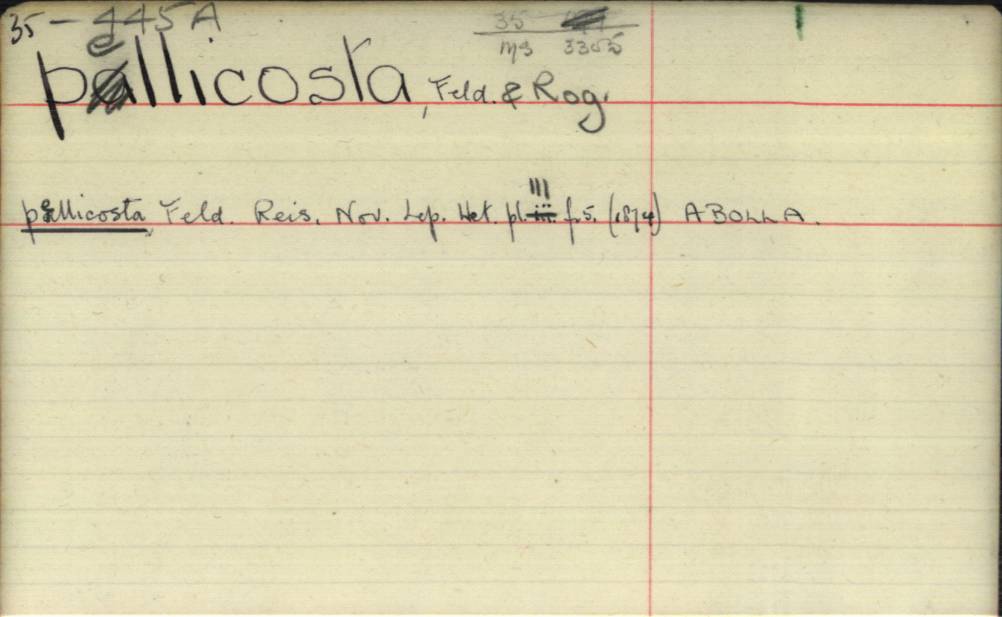 35 – 445A
35
pellicosta, Feld. & Rog.
pellicosta, Feld. Reis. Nov. Lep. Het. pl. 111 f.5. (1874) ABOLLA.